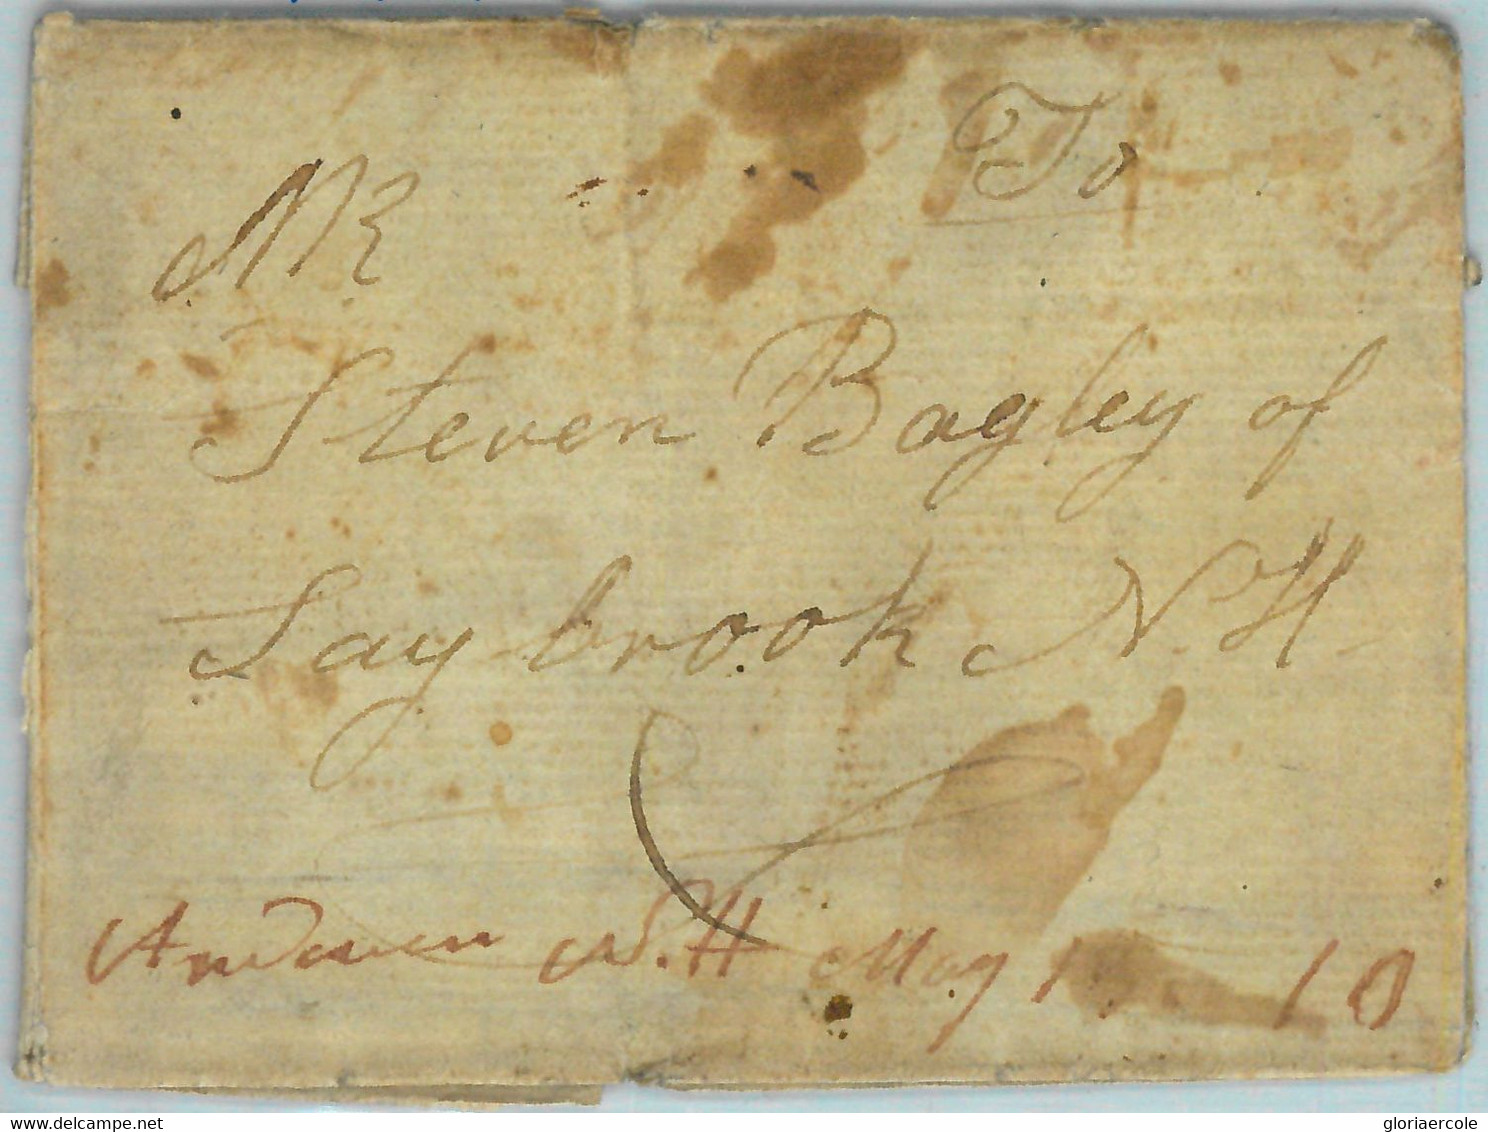 To
Mr
Steven Bagley of
Saybrook N.H
Andover N.H May 10
www.delcampe.net
gloriaercole